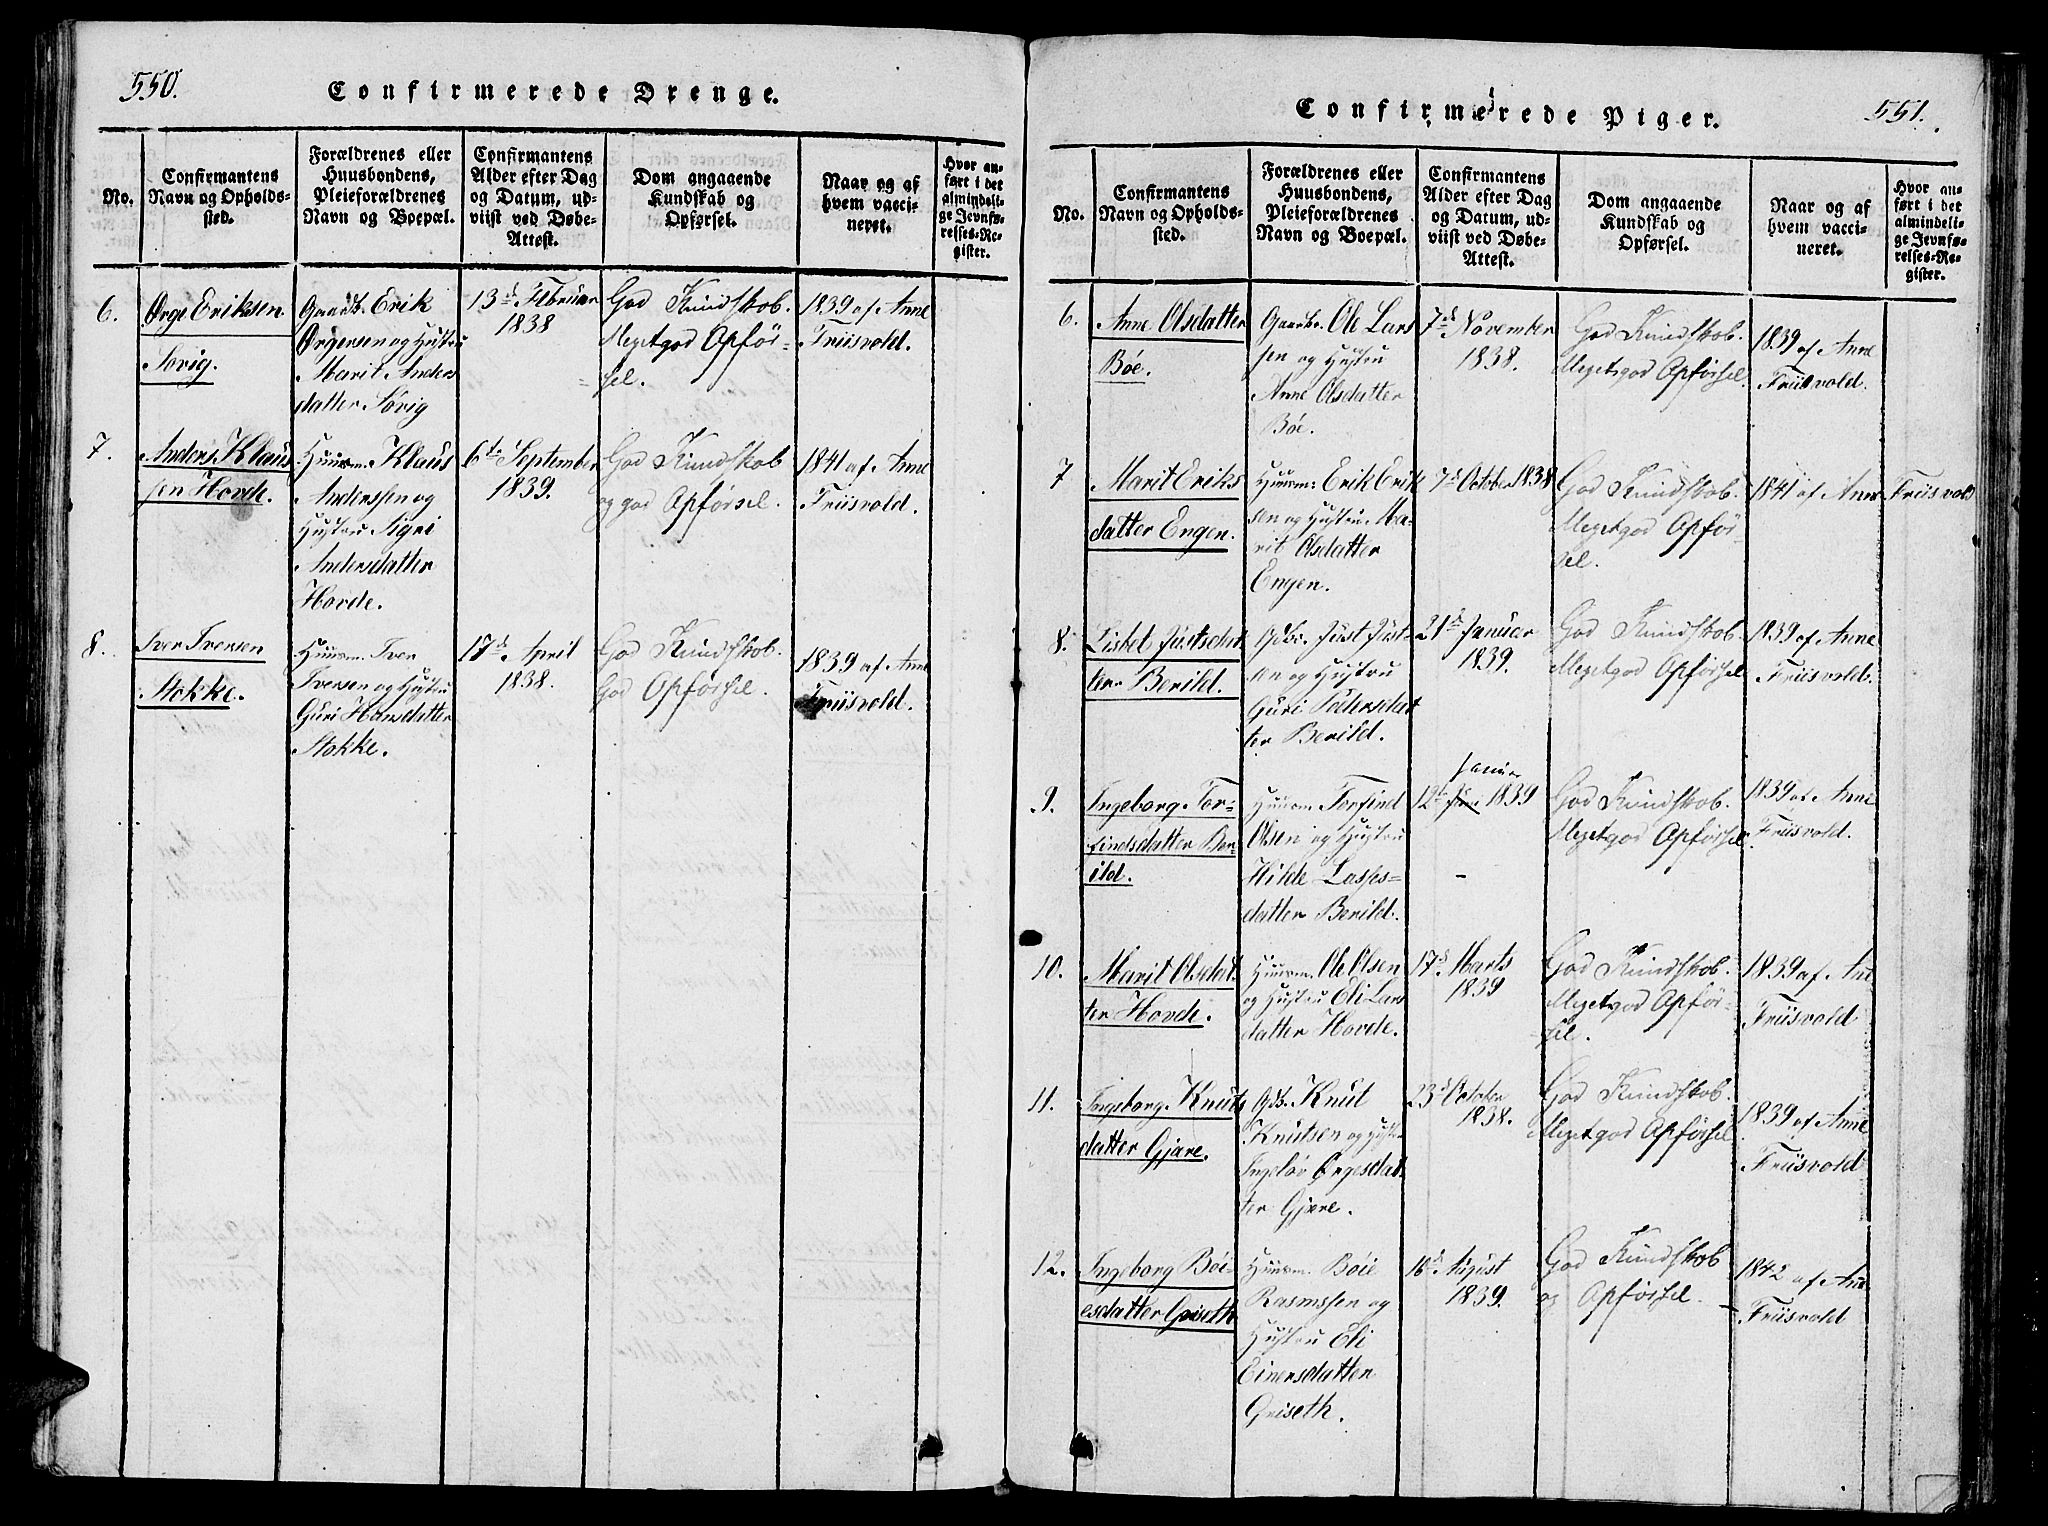 550.
Confirmerede Drenge.
No.
Confirmantens
Navn og Opholds-
sted.
Forældrenes eller
Huusbondens,
Pleieforældrenes
Navn og Boepæl.
Confirmantens
Alder efter Dag
og Datum, ud-
viist ved Døbe-
Attest.
Dom angaaende
Kundskab og
Opførsel.
Naar og af
hvem vacci-
neret.
Hvor an-
ført i det
almindeli-
ge Jevnfø-
relses-Re-
gister.
6.
Ørge Eriksen
Sovig.
Gaardb. Erik
Ørgensen og Hustru
Marit Anders
datter Søvig
13d Februar
1838
God Kundskab.
Meget god Opfør-
sel.
1839 af Anne
Friisvold.
7.
Anders Klaus
sen Hovde.
Huusm. Klaus
Anderssen og
Hustru Sigri
Andersdatter
Hovde.
6te September
1839.
God Kundskab
og god Opførsel.
1841 af Anne
Friisvold.
8.
Iver Iversen
Stokke.
Huusm. Iver
Iversen og Hustru
Guri Hansdatter
Stokke.
17d April
1838.
God Kundskab.
God Opførsel.
1839 af Anne
Friisvold.
551.
Confirmerede Piger.
No.
Confirmantens
Navn og Opholds-
sted.
Forældrenes eller
Huusbondens,
Pleieforældrenes
Navn og Boepæl.
Confirmantens
Alder efter Dag
og Datum, ud-
viist ved Døbe-
Attest.
Dom angaaende
Kundskab og
Opførsel.
Naar og af
hvem vacci-
neret.
Hvor an-
ført i det
almindeli-
ge Jevnfø-
relses-Re-
gister.
6.
Anne Olsdatter
Bøe.
Gaardbr. Ole Lars
sen og Hustru
Anne Olsdatter
Bøe.
7d November
1838.
God Kundskab.
Meget god Opførsel.
1839 af Anne
Friisvold.
7
Marit Eriks
datter Engen.
Huusm. Erik Erik
sen og Hustru Ma-
rit Olsdatter
Engen.
7d October 1838
God Kundskab.
Meget god Opfør-
sel.
1841 af Anne Friisvold
8.
Lisbet Justsdat
ter Berild.
Gdbr. Just Just-
sen og Hustru
Guri Pedersdat
ter Berild.
21d Januar
1839.
God Kundskab.
Meget god Opførsel
1839 af Anne
Friisvold.
9.
Ingeborg Tor-
findsdatter Ber-
ild.
Huusm. Torfind
Olsen og Hustru
Hilde Lasses-
datter Berild.
Januar
12te Juni 1839
God Kundskab.
Meget god Opførsel.
1839 af Anne
Friisvold.
10.
Marit Olsdat
ter Hovde.
Huusm. Ole Olsen
og Hustru Eli Lars
datter Hovde.
17d Marts
1839
God Kundskab.
Meget god Opfør-
sel.
1839 af Ane
Friisvold
11.
Ingeborg Knuts
datter Gjære.
Gdb. Knut
Knutsen og Hustru
Ingebor Ørgesdat
ter Gjære.
23d October
1838.
God Kundskab.
Meget god Opførsel
1839 af Anne
Friisvold
12.
Ingeborg Böi-
esdatter Griseth
Huusm. Böie
Rasmssen og
Hustru Eli
Einersdatter
Griseth.
16d August
1839.
God Kundskab
og Opførsel.
1842 af Ane
Friisvold